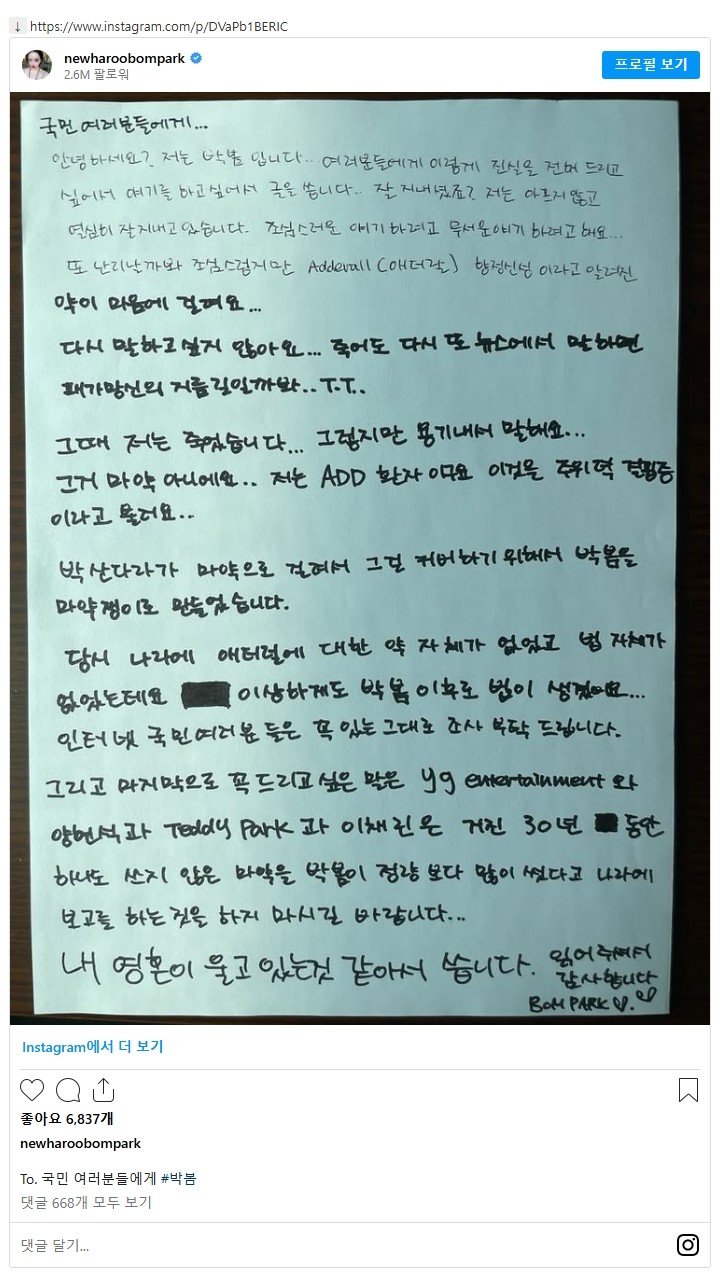 ↓ https://www.instagram.com/p/DVaPb1BERIC
newharoobompark
2.6M 팔로워
프로필 보기
국민 여러분들에게...
안녕하세요? 저는 박봄 입니다... 여러분들에게 이렇게 진실을 전해 드리고
싶어서 얘기를 하고싶어서 글을 씁니다.. 잘 지내셨죠? 저는 아프지 않고
열심히 잘지내고 있습니다. 조심스러운 얘기하려고 무서운얘기 하려고 해요...
또 난리날까봐 조심스럽지만 Adderall (애더럴) 향정신성 이라고 알려진
약이 마음에 걸려요...
다시 말하고싶지 않아요... 죽어도 다시 또 뉴스에서 말하면
패가망신의 지름길일까봐..T.T..
그때 저는 죽었습니다... 그렇지만 용기내서 말해요...
그거 마약 아니에요.. 저는 ADD 환자 이구요 이것을 주위력 결핍증
이라고 불러요..
박산다라가 마약으로 걸려서 그걸 커버하기 위해서 박봄을
마약쟁이로 만들었습니다.
당시 나라에 애터럴에 대한 약 자체가 없었고 법 자체가
없었는테요 이상하게도 박봄 이후로 법이 생겼어요...
인터넷 국민여러분 들은 꼭 있는 그대로 조사 부탁 드립니다.
그리고 마지막으로 꼭 드리고 싶은 말은 yg entertainment 와
양현석과 Teddy Park 과 이채린은 거진 30년 동안
하나도 쓰지 않은 마약을 박봄이 정량 보다 많이 썼다고 나라에
보고를 하는것을 하지 마시길 바랍니다...
내 영혼이 울고 있는것 같아서 씁니다.
읽어주셔서
감사합니다
BOM PARK♡.♡
Instagram에서 더 보기
좋아요 6,837개
newharoobompark
To. 국민 여러분들에게 #박봄
댓글 668개 모두 보기
댓글 달기...